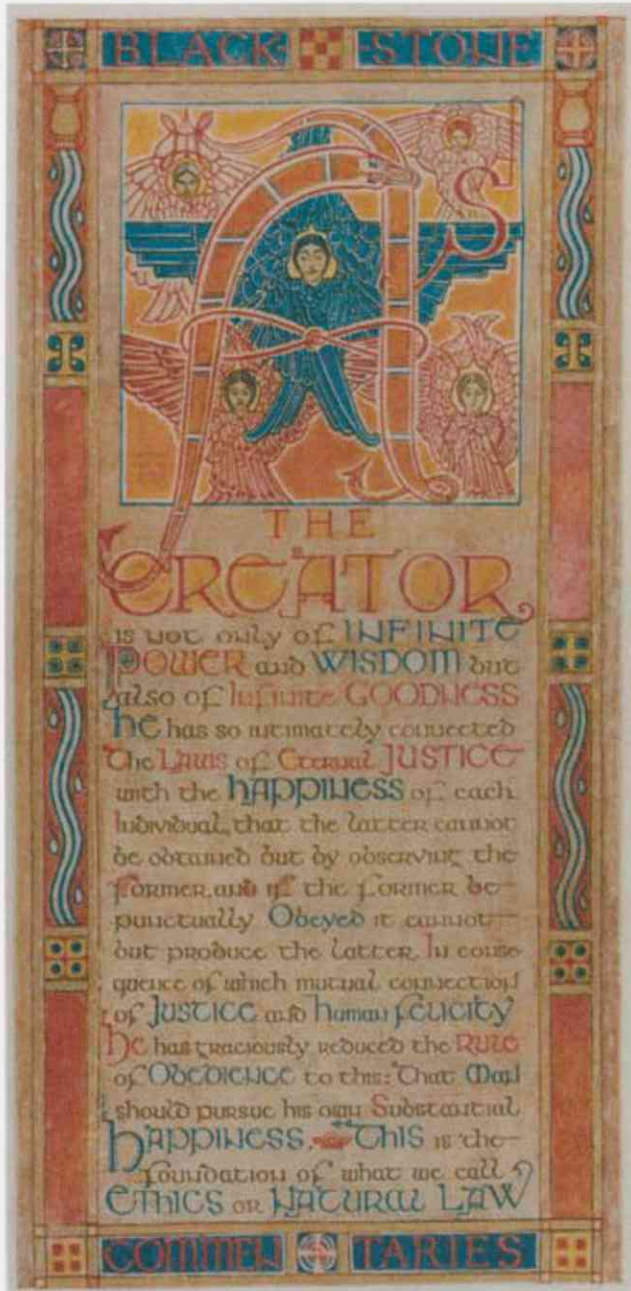 BLACK STONE
As
THE
CREATOR
is not only of INFINITE
POWER and WISDOM but
also of Infinite GOODNESS
HE has so intimately connected
The Laws of Eternal JUSTICE
with the HAPPINESS of each
Individual, that the latter cannot
be obtained but by observing the
former, and if the former be
punctually Obeyed it cannot
but produce the latter. In conse
quence of which mutual connection
of JUSTICE and human felicity
He has graciously reduced the RULE
of OBEDIENCE to this: "That Man
should pursue his own Substantial
HAPPINESS. "THIS is the
foundation of what we call
ETHICS or NATURAL LAW
COMMEN TARIES